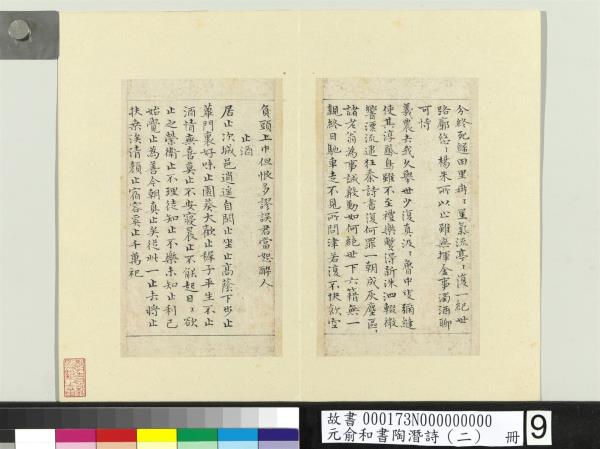 分終死歸田里冉々星氣流亭々復一紀世
路廓悠々楊朱所以止雖無揮金事濁酒聊
可恃
羲農去我久舉世少復真汲々魯中叟彌縫
使其淳鳳鳥雖不至禮樂暫得新洙泗輟微
響漂流逮狂秦詩書復何罪一朝成灰塵區々
諸老翁為事誠殷勤如何絕世下六籍無一
親終日馳車走不見所問津若復不快飲空
負頭上巾但恨多謬誤君當恕醉人
止酒
居止次城邑逍遙自閑止坐止高蔭下步止
蓽門裏好味止園葵大歡止稚子平生不止
酒情無喜暮止不安寢晨止不能起日々欲
止之營衛止不理徒知止不樂未知止利己
始覺止為善今朝真止矣從此一止去將止
扶桑涘清顏止宿容奚止千萬祀
故書 000173N000000000
元俞和書陶潛詩(二) 冊
9